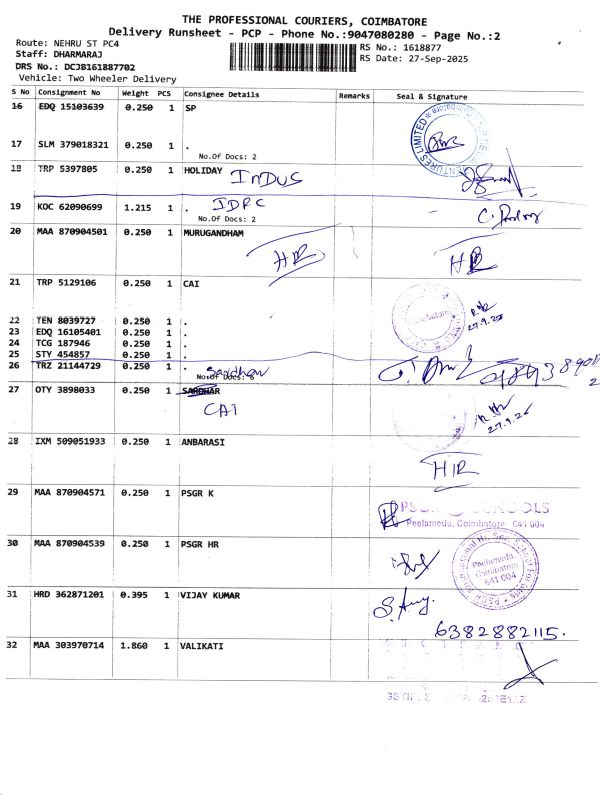 THE PROFESSIONAL COURIERS, COIMBATORE
Delivery Runsheet - PCP - Phone No.:9047080280 - Page No.:2
Route: NEHRU ST PC4
RS No.: 1618877
Staff: DHARMARAJ
RS Date: 27-Sep-2025
DRS No.: DCJB161887702
Vehicle: Two Wheeler Delivery
S No Consignment No Weight PCS Consignee Details Remarks Seal & Signature
16 EDQ 15103639 0.250 1 SP
17 SLM 379018321 0.250 1 .
No.Of Docs: 2
18 TRP 5397805 0.250 1 HOLIDAY INDUS
19 KOC 62090699 1.215 1 . IDPC
No.Of Docs: 2
20 MAA 870904501 0.250 1 MURUGANDHAM
HR HR
21 TRP 5129106 0.250 1 CAI
Coimbatore
27.9.25
22 TEN 8039727 0.250 1 .
23 EDQ 16105401 0.250 1 .
24 TCG 187946 0.250 1 .
25 STY 454857 0.250 1 .
26 TRZ 21144729 0.250 1 . Sardhar
No.Of Docs: 6
27 OTY 3898033 0.250 1 SARDHAR
CAI
28 IXM 509051933 0.250 1 ANBARASI
HR
29 MAA 870904571 0.250 1 PSGR K
Peelamedu, Coimbatore - 641 004
30 MAA 870904539 0.250 1 PSGR HR
Peelamedu, Coimbatore 641 004
31 HRD 362871201 0.395 1 VIJAY KUMAR
6382882115.
32 MAA 303970714 1.860 1 VALIKATI